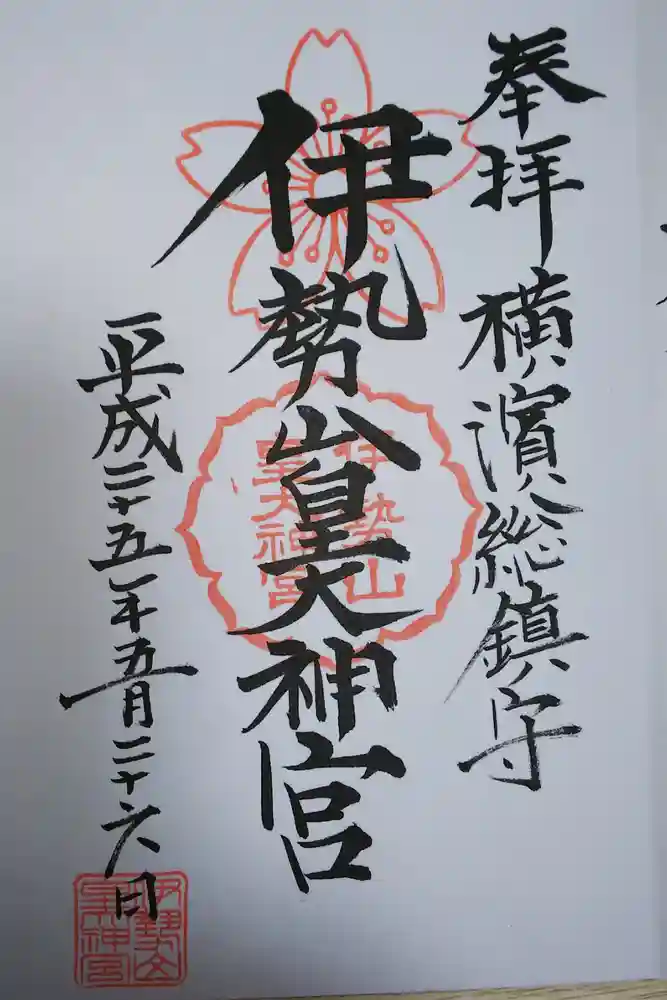 奉拝 横濱総鎮守
伊勢山皇大神宮
平成二十五年五月二十六日
伊勢山
皇大神宮
伊勢山
皇神宮